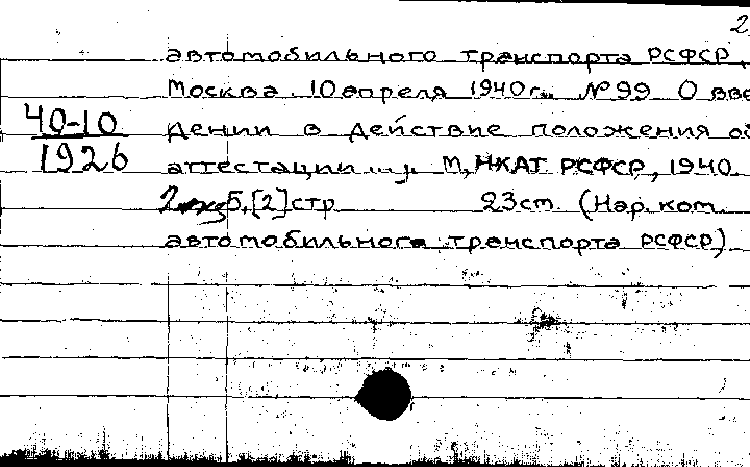 2
автомобильного транспорта РСФСР,
Москва. 10 апреля 1940 г. №99 О вве
40-10
1926
дении в действие положения об
аттестации ... М, НКАТ РСФСР, 1940.
5,[2] стр 23 ст. (Нар. ком.
автомобильного транспорта РСФСР)